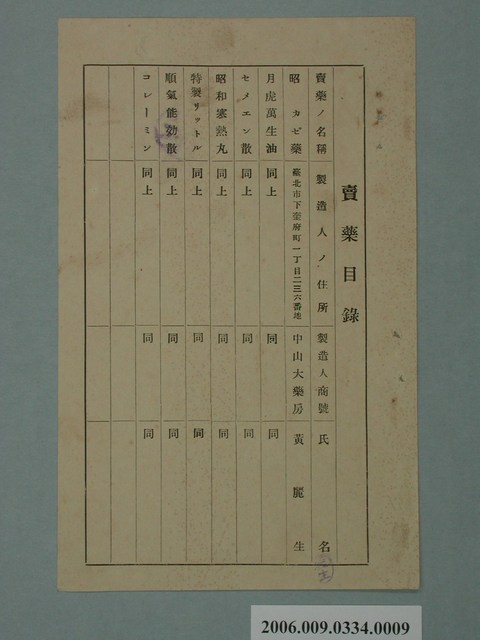 賣藥目錄
賣藥ノ名稱 製造人ノ住所 製造人商號 氏名
昭 カゼ藥 臺北市下奎府町一丁目二三六番地 中山大藥房 黃麗生
月虎萬生油 同上 同 同
セメエン散 同上 同 同
昭和寒熱丸 同上 同 同
特製リットル 同上 同 同
順氣能効散 同上 同 同
コレーミン 同上 同 同
2006.009.0334.0009